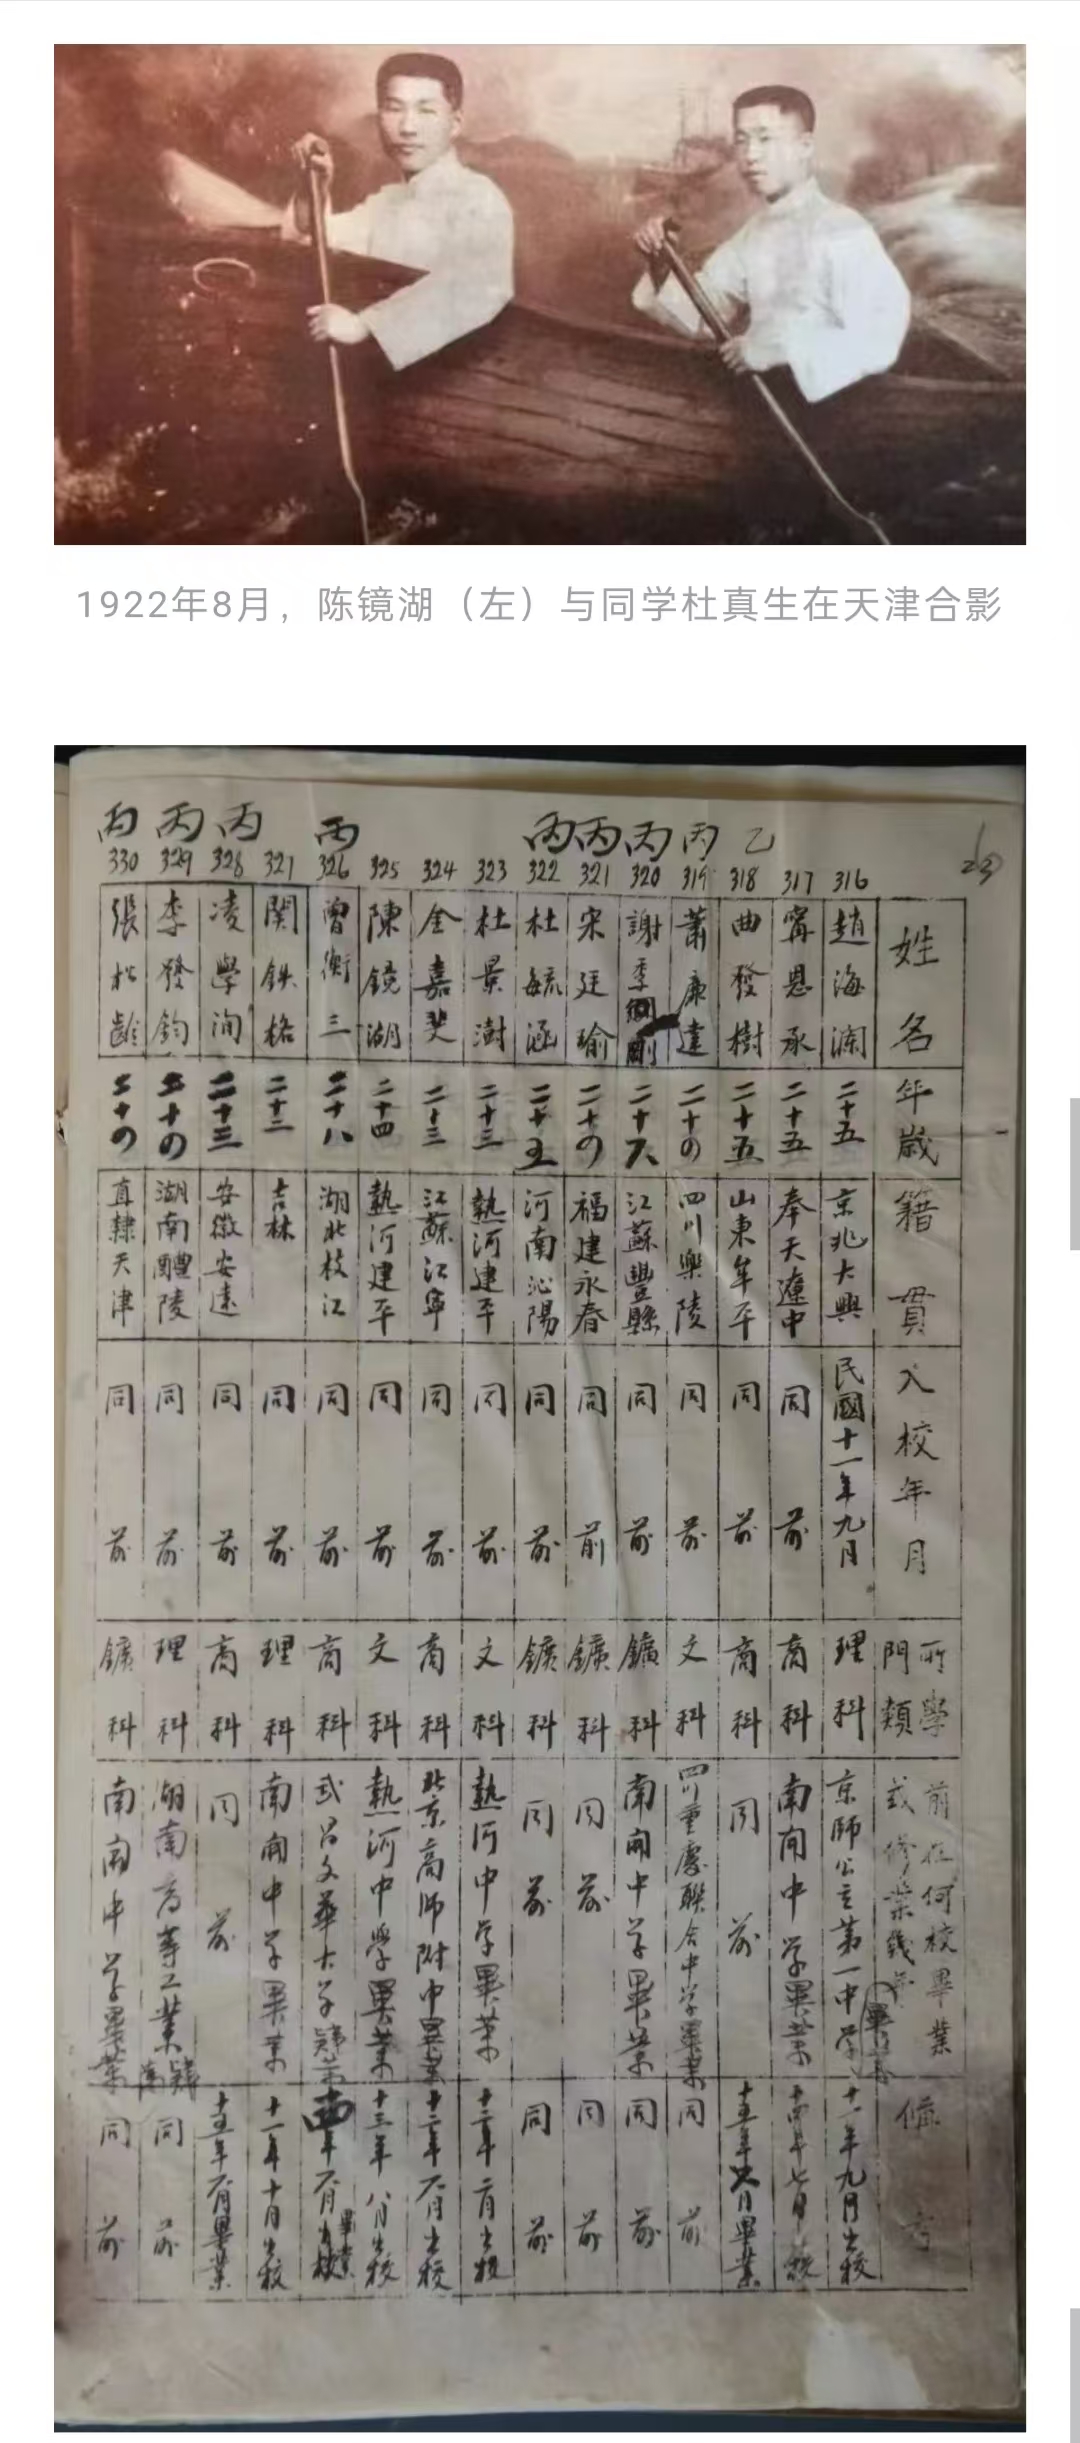 1922年8月，陈镜湖（左）与同学杜真生在天津合影
丙 丙 丙 丙 丙 丙 丙 丙 乙
330 329 328 327 326 325 324 323 322 321 320 319 318 317 316
姓名 年歲 籍貫 入校年月 所學門類 前在何校畢業或修業幾年 備考
趙海瀾 二十五 京兆大興 民國十一年九月 理科 京師公立第一中学畢業 十一年九月出校
甯恩承 二十五 奉天遼中 同前 商科 南開中学畢業
曲發樹 二十五 山東牟平 同前 商科 同前 十五年六月畢業
蕭廉達 二十四 四川樂陵 同前 文科 四川重慶聯合中学畢業 同前
謝季剛 二十六 江蘇豐縣 同前 鑛科 南開中学畢業 同前
宋廷瑜 二十四 福建永春 同前 鑛科 同前 同前
杜毓涵 二十五 河南沁陽 同前 鑛科 同前 同前
杜景澍 二十三 熱河建平 同前 文科 熱河中学畢業 十二年二月出校
金嘉斐 二十三 江蘇江寧 同前 商科 北京高師附中畢業 十二年六月出校
陳鏡湖 二十四 熱河建平 同前 文科 熱河中學畢業 十三年八月出校
曾衡三 二十八 湖北枝江 同前 商科 武昌文華大学肄業
関鉄格 二十三 吉林 同前 理科 南開中学畢業 十一年十月出校
凌學洵 二十三 安徽安遠 同前 商科 同前 十五年六月畢業
李發鈞 二十四 湖南醴陵 同前 理科 湖南高等工業 同前
張松齡 二十四 直隸天津 同前 鑛科 南開中学畢業 同前